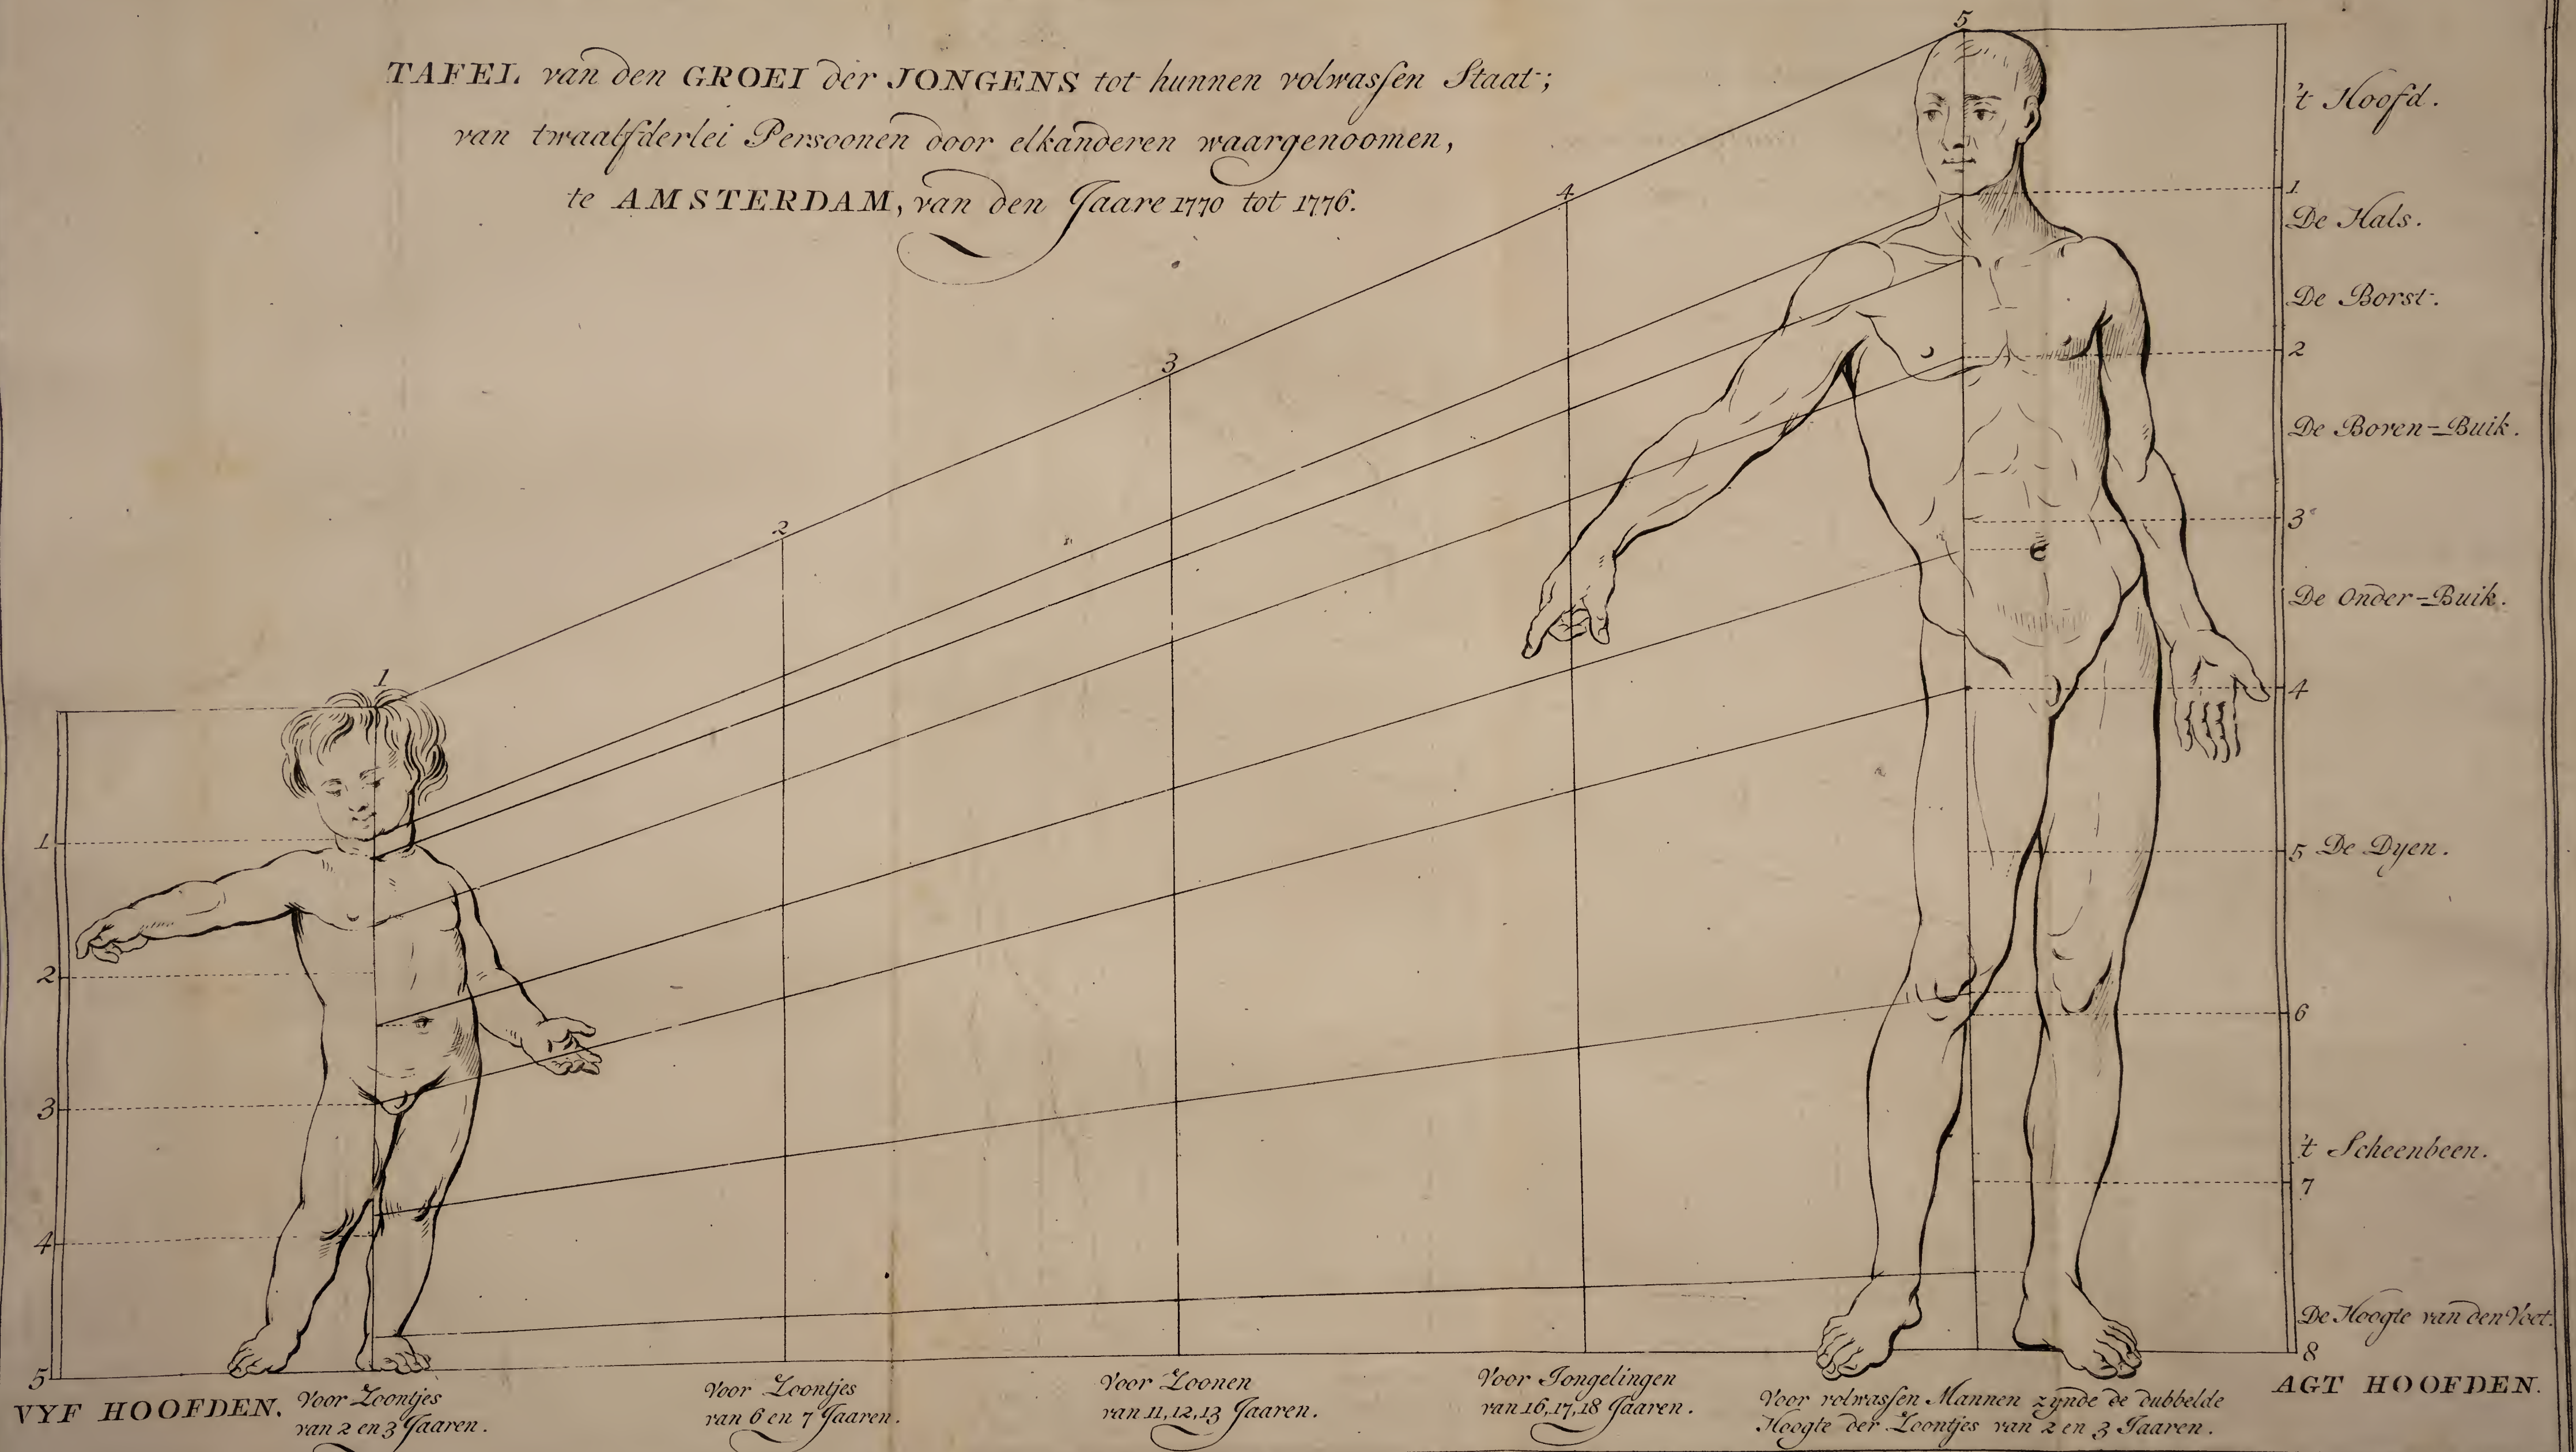 TAFEL van den GROEI der JONGENS tot hunnen volwasſen Staat;
van twaalfderlei Persoonen door elkanderen waargenoomen,
te AMSTERDAM, van den Jaare 1770 tot 1776.
1
2
3
4
5
't Hoofd.
1
De Hals.
De Borst.
2
De Boven-Buik.
3
De Onder-Buik.
4
5 De Dyen.
6
't Scheenbeen.
7
De Hoogte van den Voet.
8
AGT HOOFDEN.
1
2
3
4
5
VYF HOOFDEN.
Voor Zoontjes
van 2 en 3 Jaaren.
Voor Zoontjes
van 6 en 7 Jaaren.
Voor Zoonen
van 11, 12, 13 Jaaren.
Voor Jongelingen
van 16, 17, 18 Jaaren.
Voor volwasſen Mannen zynde de dubbelde
Hoogte der Zoontjes van 2 en 3 Jaaren.